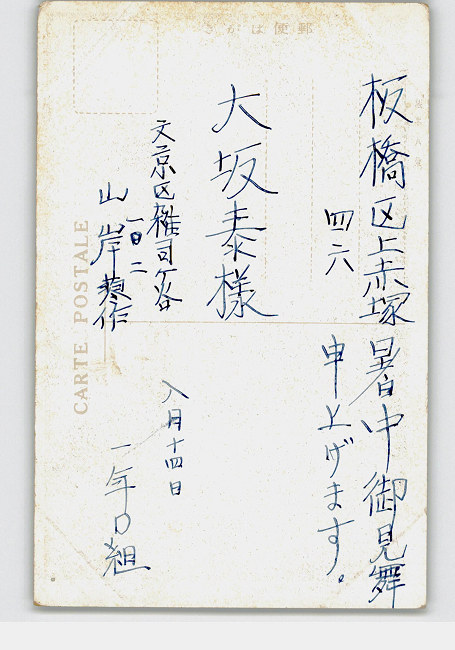 郵便はがき
CARTE POSTALE
板橋区上赤塚
四六
大坂泰様
文京区雑司ケ谷
一〇二
山岸 作
暑中御見舞
申上げます。
八月十四日
一年D組